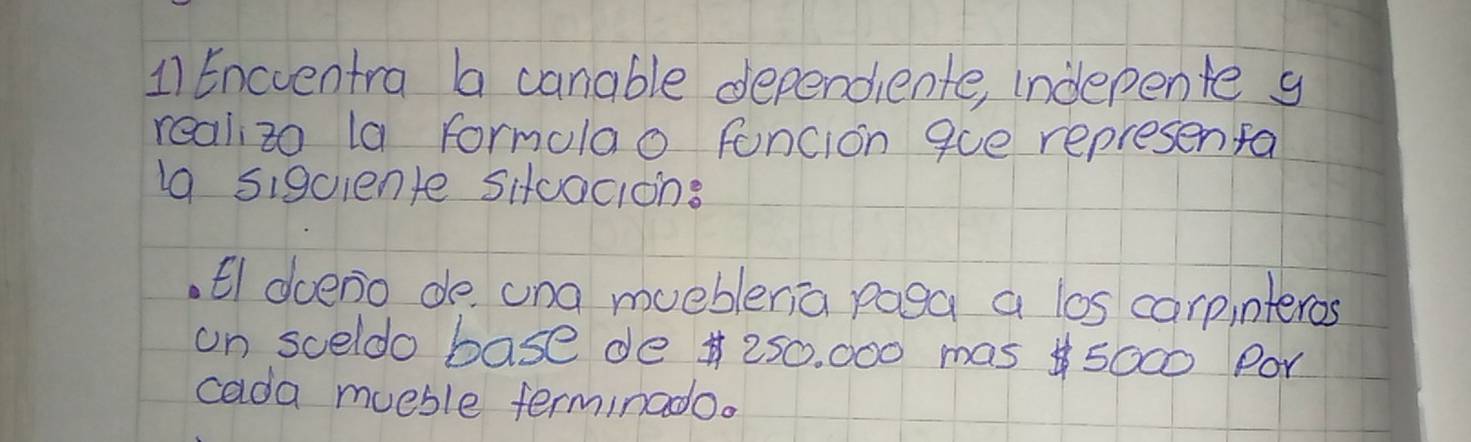 1) Encuentra la variable dependiente, indepente y
realizo la formula o función que representa
la siguiente situación:
.El dueño de una mueblería paga a los carpinteros
un sueldo base de $250.000 mas $5000 por
cada mueble terminado.